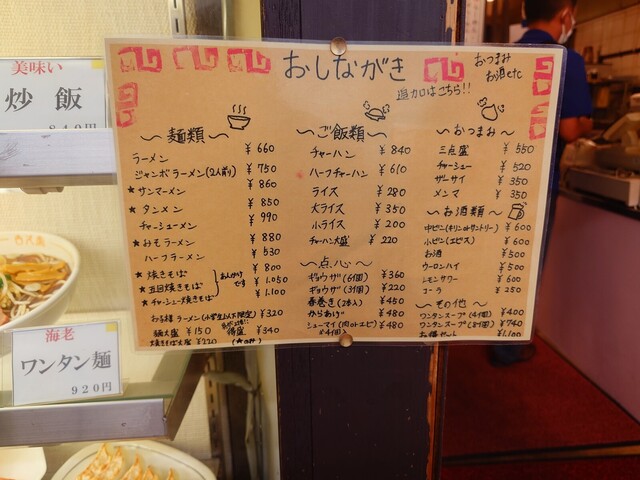 美味い
炒飯
840円
おしながき
おつまみ
お酒etc
追加はこちら!!
〜麺類〜
ラーメン ¥660
ジャンボラーメン(2人前) ¥750
★サンマーメン ¥860
★タンメン ¥850
チャーシューメン ¥990
★みそラーメン ¥880
ハーフラーメン ¥530
★焼きそば ¥800
★五目焼きそば ¥1.050
★チャーシュー焼きそば ¥1.100
あんかけです
お子様ラーメン(小学生以下限定) ¥320
麺大盛 ¥150 得盛 ¥340
焼きそば大盛 ¥220
〜ご飯類〜
チャーハン ¥840
ハーフチャーハン ¥610
ライス ¥280
大ライス ¥350
小ライス ¥200
チャーハン大盛 ¥220
〜点心〜
ギョウザ(6個) ¥360
ギョウザ(3個) ¥220
春巻き(2本入) ¥450
からあげ ¥480
シューマイ(肉orエビ) ¥480
〜おつまみ〜
三点盛 ¥550
チャーシュー ¥520
ザーサイ ¥350
メンマ ¥350
〜お酒類〜
中ビン(キリンorサントリー) ¥600
小ビン(エビス) ¥600
お酒 ¥500
ウーロンハイ ¥500
レモンサワー ¥600
コーラ ¥250
〜その他〜
ワンタンスープ(4個) ¥400
ワンタンスープ(8個) ¥740
お得セット ¥1,100
海老
ワンタン麺
920円